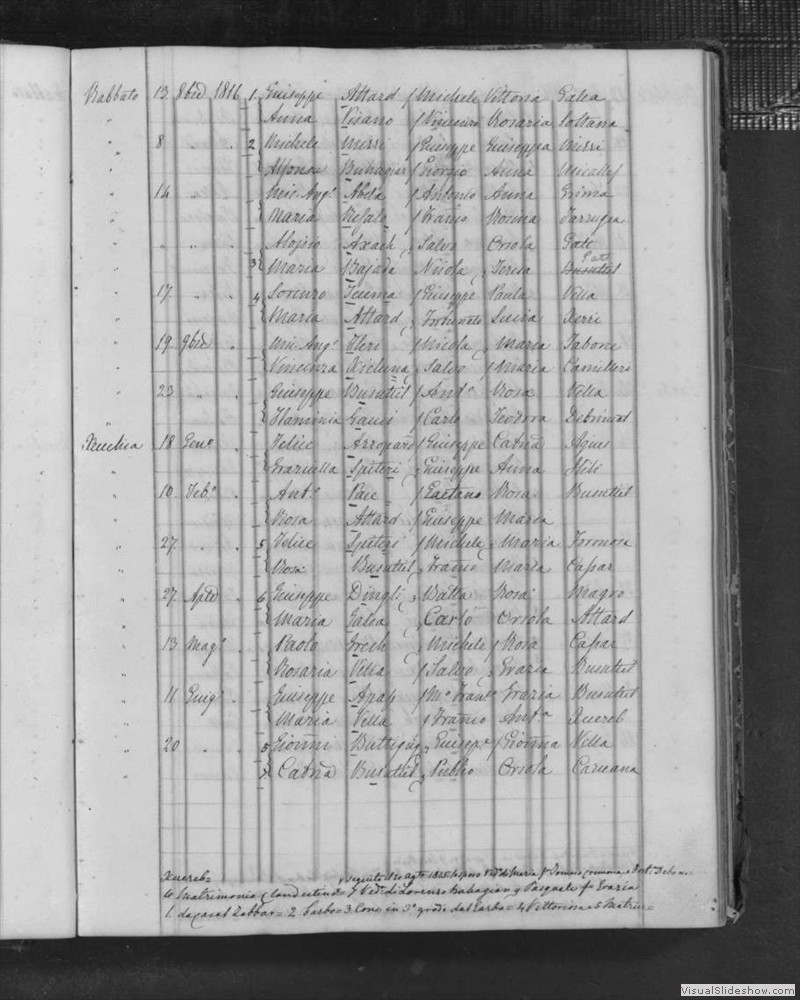 Rabbato 13 8bre 1816 1. Giuseppe Attard f Michele Vittoria Galea
Anna Pisano f Vincenzo Rosaria Soltana
" 8 " " 2 Michele Mizzi f Giuseppe Giuseppa Mizzi
Alfonsa Buhagiar f Giorgio Anna Micallef
" 14 " " Mic. Ang.o Abela f Antonio Anna Grima
Maria Refalo f Franco Rosina Farrugia
" " " " Alojsio Axach Salvo Orsola Gatt
3 Maria Bajada Nicola Teresa Busuttil Gatt
" 17 " " 4 Lorenzo Teuma f Giuseppe Paula Vella
Maria Attard Fortunato Lucia Xerri
" 19 9bre " Mic. Ang.o Fleri f Nicola Maria Tabone
Vincenza Xicluna Salvo Maria Camilleri
" 23 " " Giuseppe Busuttil f And.o Rosa Vella
Flaminia Gauci f Carlo Teodora Debrincat
Xeuchia 18 Gen.o " Felice Arropard f Giuseppe Catna Agius
Graziella Spiteri Giuseppe Anna
" 10 Feb.o " Ant.o Pace f Gaetano Rosa Busuttil
Rosa Attard f Giuseppe Maria
" 27 " " 5 Felice Spiteri f Michele Maria
Rosa Busuttil Franco Maria Capar
" 27 Aple " 6 Giuseppe Dingli Batta Rosa Magro
Maria Galea Carlo Orsola Attard
" 13 Mag.o " Paolo Grech Michele f Rosa Capar
Rosaria Vella f Salvo Grazia Busuttil
" 11 Giug.o " Giuseppe Apap f M.o Franc.o Grazia Busuttil
Maria Vella f Franco Ant.a Xuereb
" 20 " " 5 Gionni Buttigieg Giusep.e f Gionna Vella
7 Catna Busuttil Publio Orsola Caruana
Xuereb= seguito il 20 Agto 1815 sposo Ved.o di Maria f Domenico
6 Matrimonio Clandestino= 7 Ved.a di Lorenzo Buhagiar f Pasquale f Grazia
1. da Casal Zabbar= 2 Garbo= 3 Cons. in 3o grado dal Garbo= 4 Vittoriosa= 5 Matrice=
VisualSlideshow.com